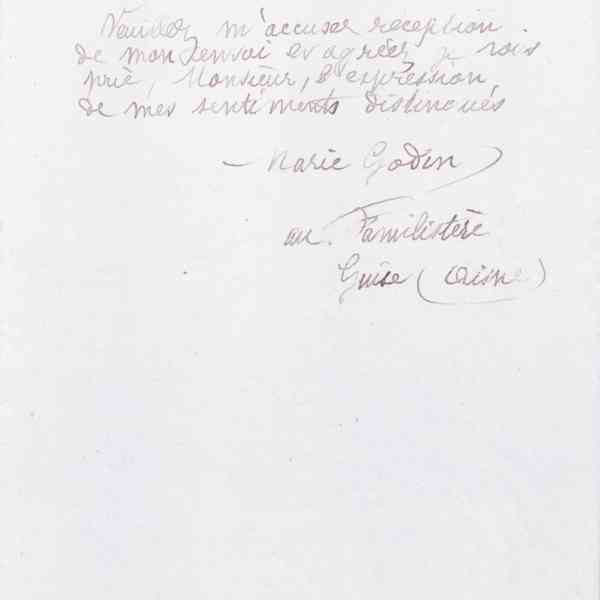 Veuillez m'accuser réception
de mon envoi et agréer, je vous
prie, Monsieur, l'expression
de mes sentiments distingués
Marie Godin
au Familistère
Guise (Aisne)